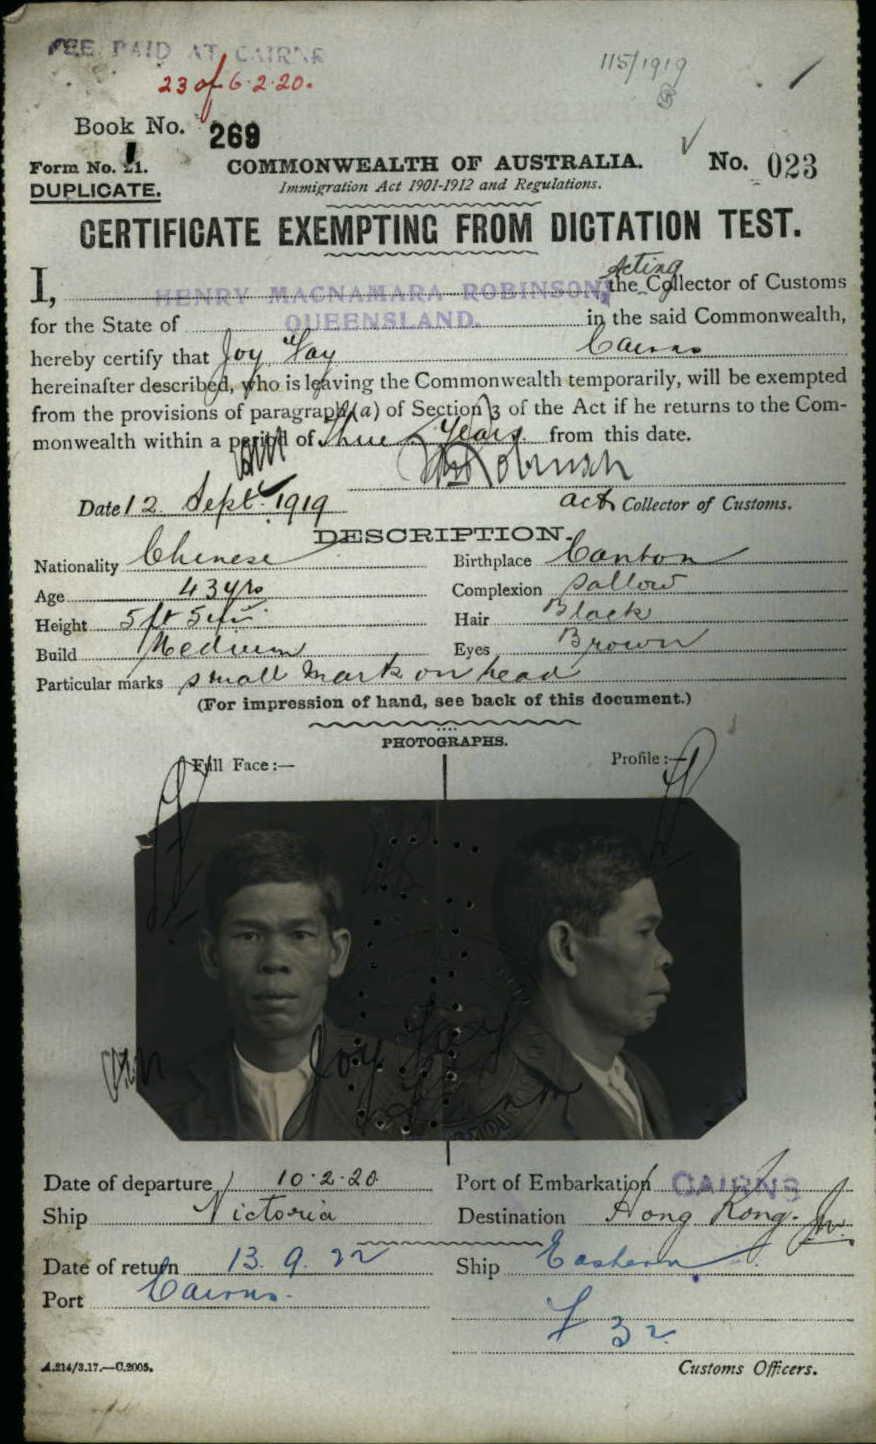 FEE PAID AT CAIRNS
23 of 6.2.20.
115/1919
Book No. 269
Form No. 21.
COMMONWEALTH OF AUSTRALIA.
No. 023
DUPLICATE.
Immigration Act 1901-1912 and Regulations.
CERTIFICATE EXEMPTING FROM DICTATION TEST.
I, HENRY MACNAMARA ROBINSON, the Acting Collector of Customs
for the State of QUEENSLAND. in the said Commonwealth,
hereby certify that Joy Fay Cairns
hereinafter described, who is leaving the Commonwealth temporarily, will be exempted
from the provisions of paragraph (a) of Section 3 of the Act if he returns to the Com-
monwealth within a period of three Years from this date.
Date 12 Sept. 1919
Act Collector of Customs.
DESCRIPTION.
Nationality Chinese
Birthplace Canton
Age 43 yrs
Complexion Sallow
Height 5 ft 5 in
Hair Black
Build Medium
Eyes Brown
Particular marks small mark on head
(For impression of hand, see back of this document.)
PHOTOGRAPHS.
Full Face:—
Profile:—
Joy Fay
Date of departure 10.2.20
Port of Embarkation CAIRNS
Ship Victoria
Destination Hong Kong.
Date of return 13.9.22
Ship Eastern
Port Cairns.
32
A.214/3.17.—C.2005.
Customs Officers.